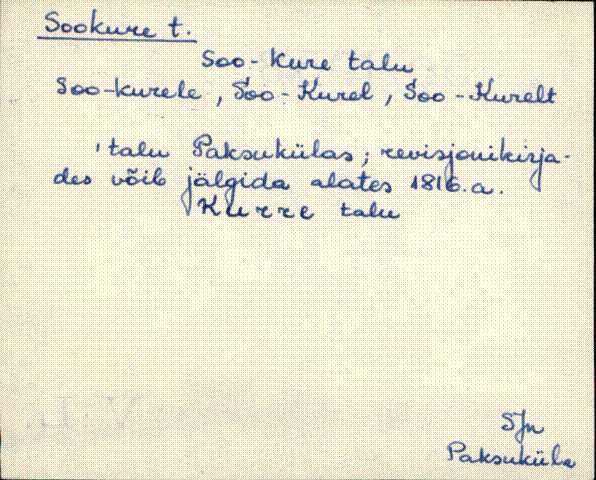 Sookure t.
Soo-Kure talu
Soo-kurele, Soo-Kurel, Soo-Kurelt
'talu Paksukülas; revisjonikirja-
des võib jälgida alates 1816.a.
Kurre talu
SJn
Paksuküla